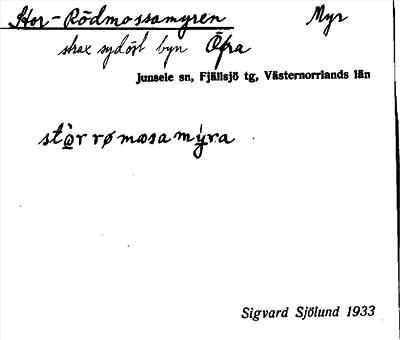 Stor-Rödmossamyren Myr
strax sydöst byn Öfra
Junsele sn, Fjällsjö tg, Västernorrlands län
stò̱r rømosa mý̱ra
Sigvard Sjölund 1933